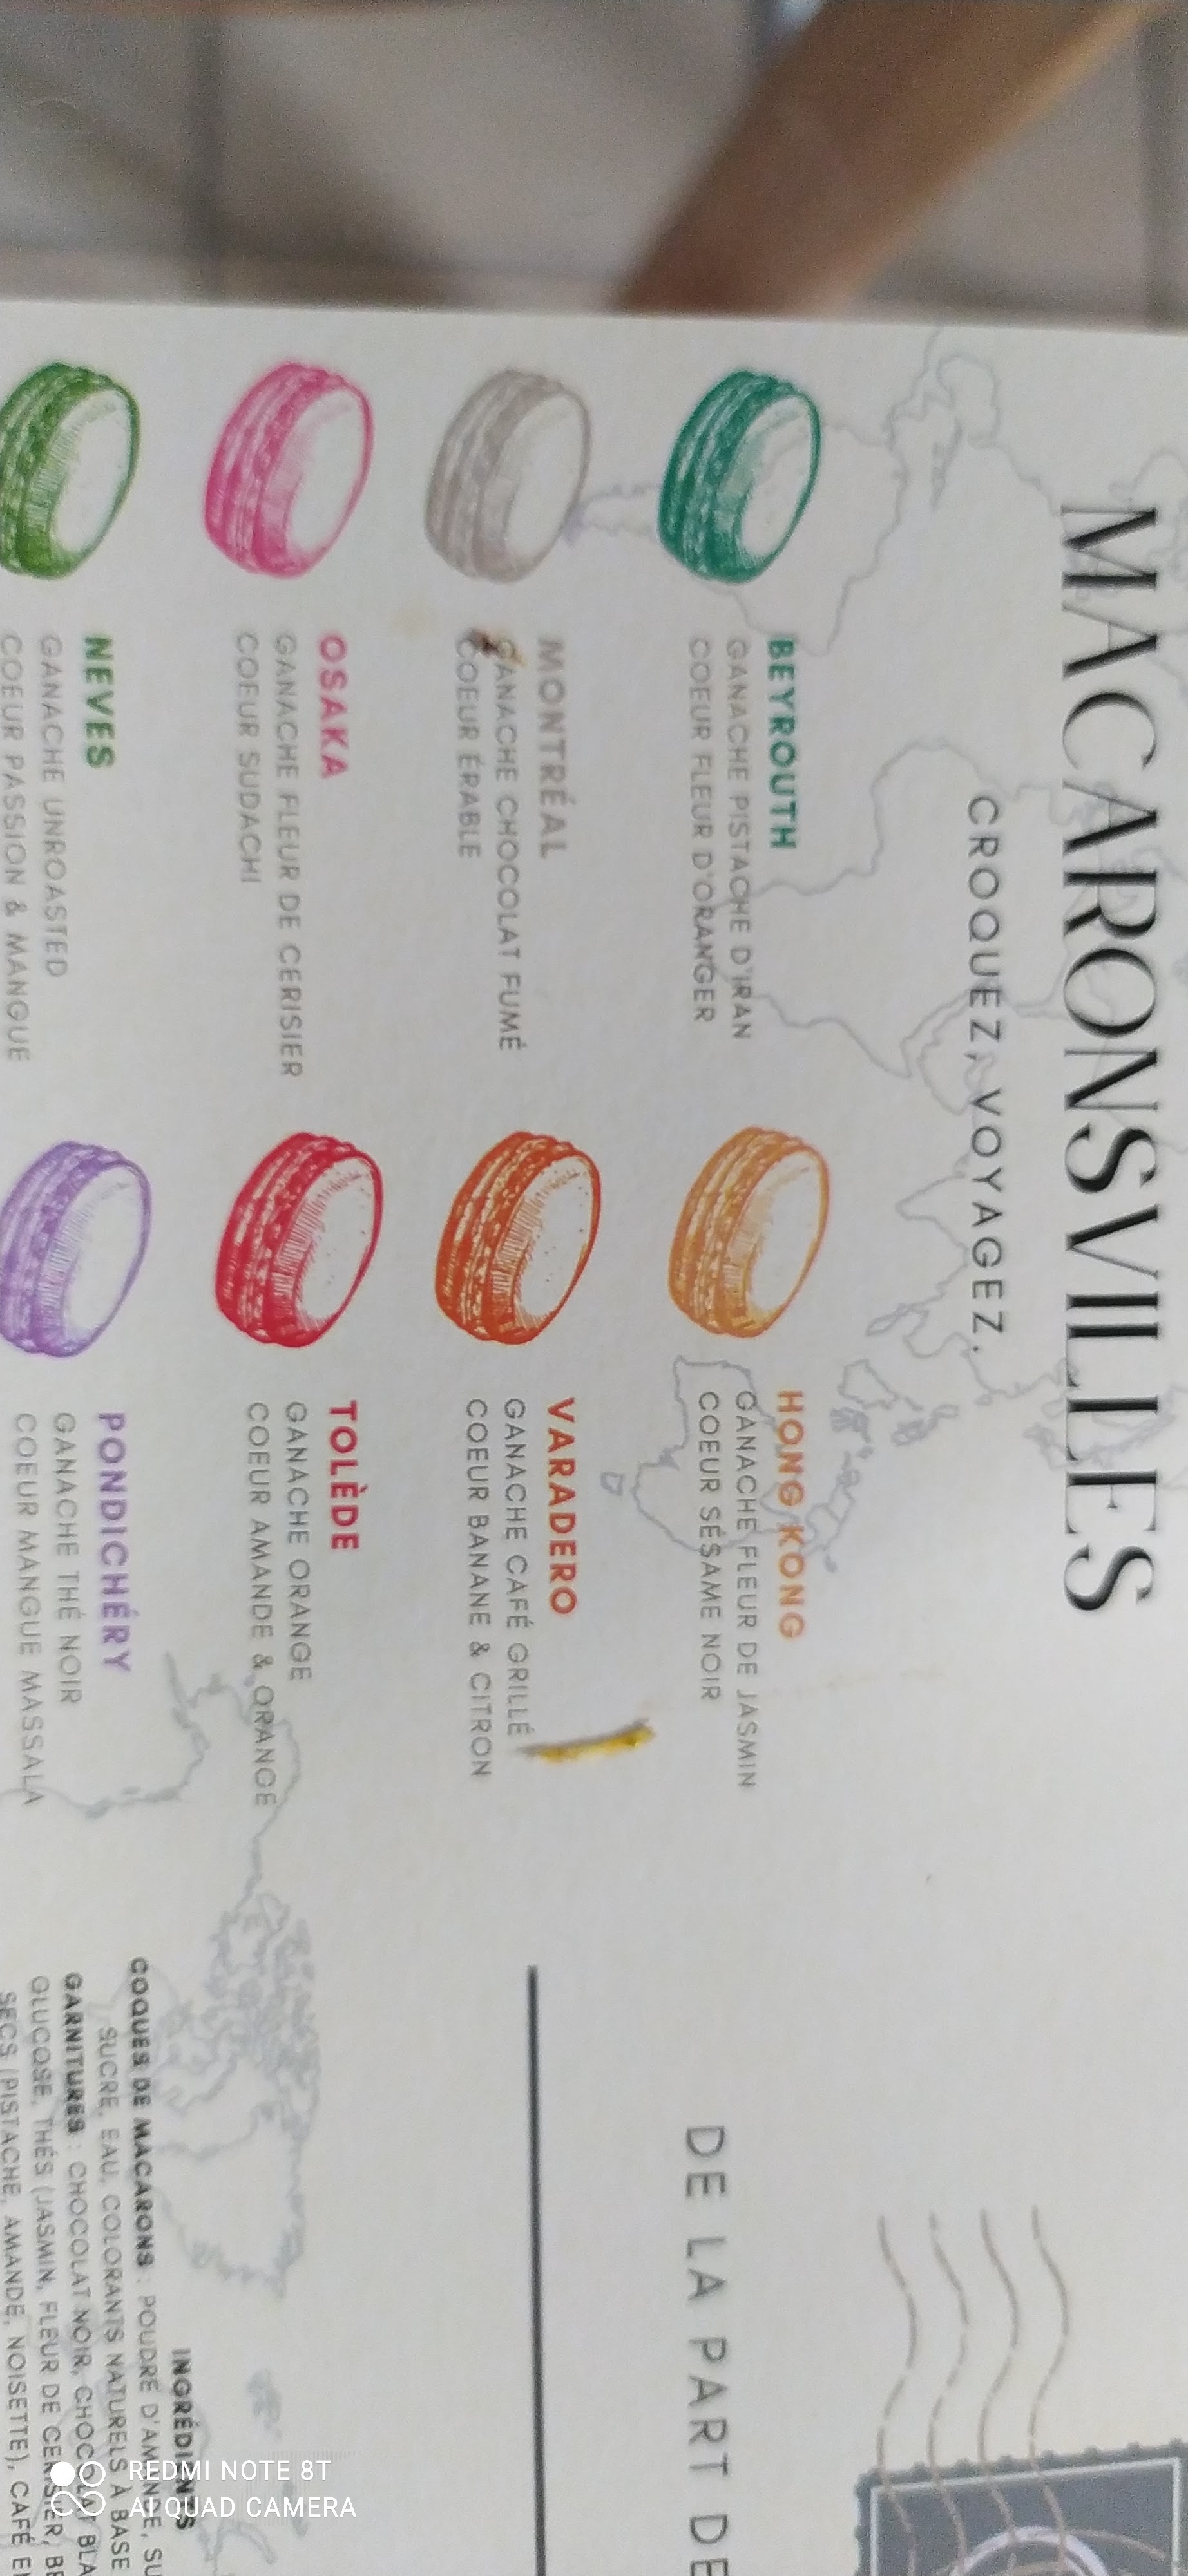 MACARONSVILLES
CROQUEZ, VOYAGEZ.
BEYROUTH
GANACHE PISTACHE D'IRAN
COEUR FLEUR D'ORANGER
HONG KONG
GANACHE FLEUR DE JASMIN
COEUR SÉSAME NOIR
MONTRÉAL
GANACHE CHOCOLAT FUMÉ
COEUR ÉRABLE
VARADERO
GANACHE CAFÉ GRILLÉ
COEUR BANANE & CITRON
OSAKA
GANACHE FLEUR DE CERISIER
COEUR SUDACHI
TOLÈDE
GANACHE ORANGE
COEUR AMANDE & ORANGE
NEVES
GANACHE UNROASTED
COEUR PASSION & MANGUE
PONDICHÉRY
GANACHE THÉ NOIR
COEUR MANGUE MASSALA
DE LA PART DE
INGRÉDIENTS
COQUES DE MACARONS : POUDRE D'AMANDE, SU
SUCRE, EAU, COLORANTS NATURELS À BASE
GARNITURES : CHOCOLAT NOIR, CHOCOLAT BLA
GLUCOSE, THÉS (JASMIN, FLEUR DE CERISIER, BE
SECS (PISTACHE, AMANDE, NOISETTE), CAFÉ E
REDMI NOTE 8T
AI QUAD CAMERA